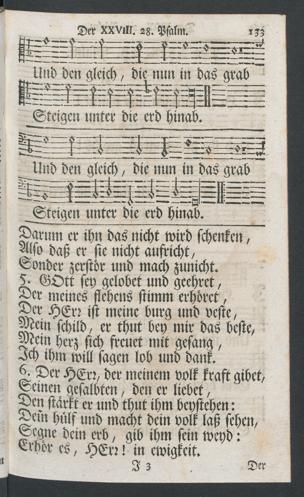 Der XXVIII. 28. Psalm. 133
Und den gleich, die nun in das grab
Steigen unter die erd hinab.
Und den gleich, die nun in das grab
Steigen unter die erd hinab.
Darum er ihn das nicht wird schenken,
Also daß er sie nicht aufricht,
Sonder zerstör und mach zunicht.
5. GOtt sey gelobet und geehret,
Der meines flehens stimm erhöret,
Der HErr ist meine burg und veste,
Mein schild, er thut bey mir das beste,
Mein herz sich freuet mit gesang,
Ich ihm will sagen lob und dank.
6. Der HErr, der meinem volk kraft gibet,
Seinen gesalbten, den er liebet,
Den stärkt er und thut ihm beystehen:
Deũ hülf und macht dein volk laß sehen,
Segne dein erb, gib ihm sein weyd:
Erhör es, HErr! in ewigkeit.
J 3 Der